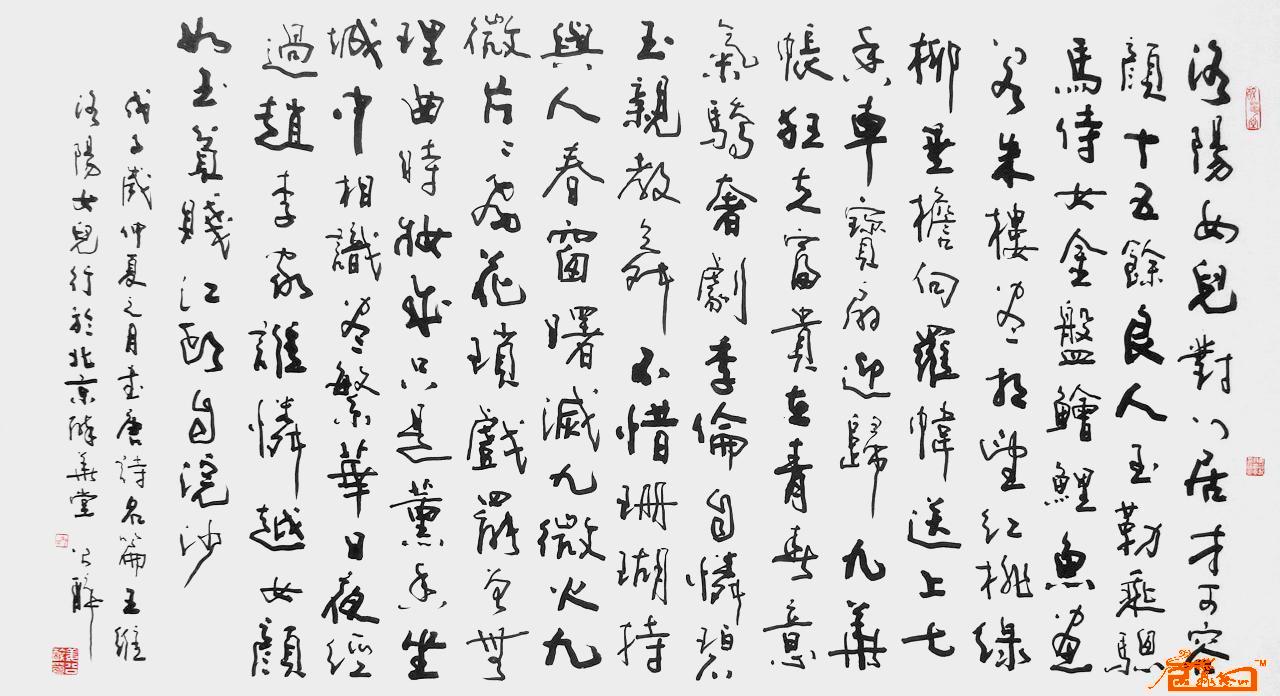 洛陽女兒對門居才可容
顏十五餘良人玉勒乘驄
馬侍女金盤鱠鯉魚畫
閣朱樓盡相望紅桃綠
柳垂檐向羅幃送上七
香車寶扇迎歸九華
帳狂夫富貴在青春意
氣驕奢劇季倫自憐碧
玉親教舞不惜珊瑚持
與人春窗曙滅九微火九
微片々飛花瑣戲罷曾無
理曲時妝成只是薰香坐
城中相識盡繁華日夜經
過趙李家誰憐越女顏
如玉貧賤江頭自浣沙
戊子歲仲夏之月書唐詩名篇王維
洛陽女兒行於北京醉華堂 公醉